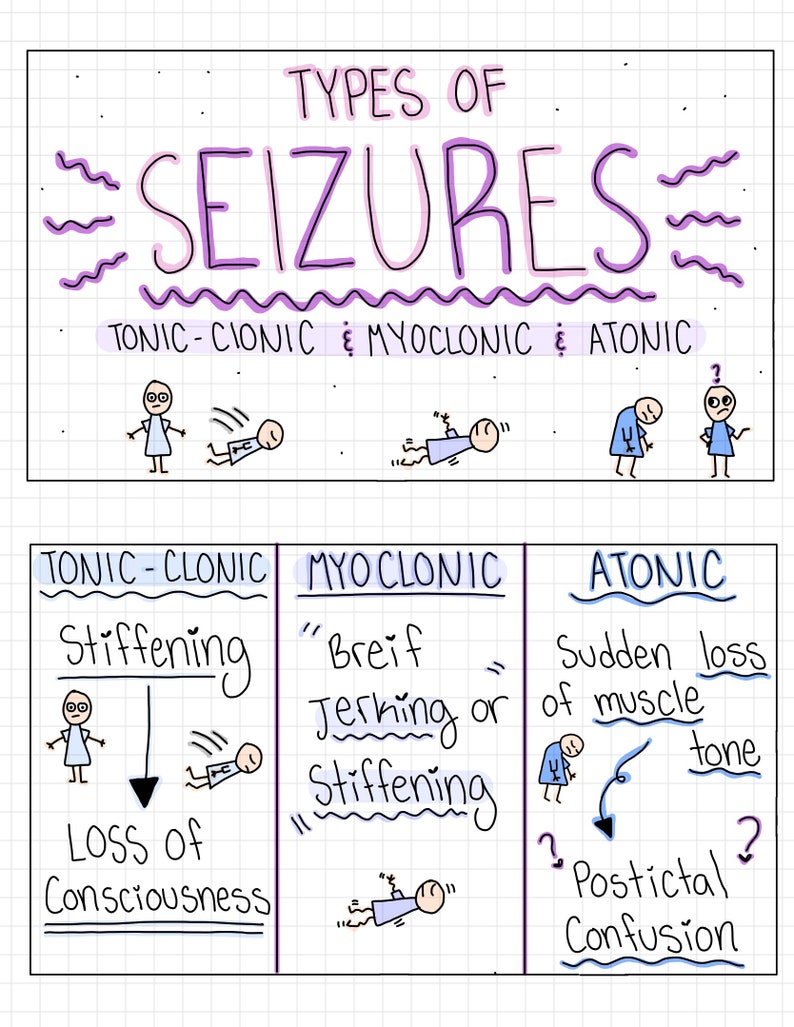 TYPES OF
SEIZURES
TONIC-CLONIC & MYOCLONIC & ATONIC
?
TONIC-CLONIC
Stiffening
LOSS of
Consciousness
MYOCLONIC
Breif
Jerking or
Stiffening
ATONIC
Sudden loss
of muscle
tone
? ?
Postictal
Confusion